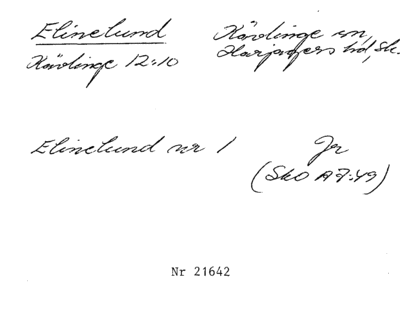 Elinelund Kävlinge sn,
Kävlinge 12:10 Harjagers hd, Sk.
Elinelund nr 1 Jr
(Sko A 7:49)
Nr 21642